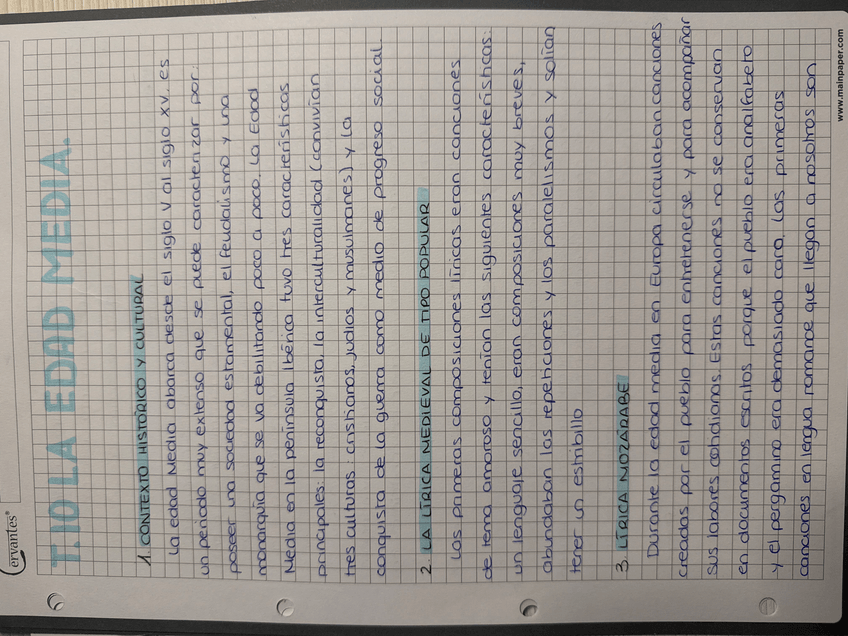 Cervantes®
T.10 LA EDAD MEDIA.
1. CONTEXTO HISTÓRICO Y CULTURAL
La edad Media abarca desde el siglo V al siglo XV. es
un periodo muy extenso que se puede caracterizar por:
poseer una sociedad estamental, el feudalismo y una
monarquía que se va debilitando poco a poco. La Edad
Media en la península Ibérica tuvo tres características
principales: la reconquista, la interculturalidad (convivían
tres culturas: cristianos, judios y musulmanes) y la
conquista de la guerra como medio de progreso social.
2. LA LÍRICA MEDIEVAL DE TIPO POPULAR
Las primeras composiciones líricas eran canciones
de tema amoroso y tenían las siguientes características:
un lenguaje sencillo, eran composiciones muy breves,
abundaban las repeticiones y los paralelismos y solían
tener un estribillo
3. LÍRICA MOZÁRABE
Durante la edad media en Europa circulaban canciones
creadas por el pueblo para entretenerse y para acompañar
sus labores cotidianas. Estas canciones no se conservan
en documentos escritos porque el pueblo era analfabeto
y el pergamino era demasiado caro. Las primeras
canciones en lengua romance que llegan a nosotros son
www.mainpaper.com